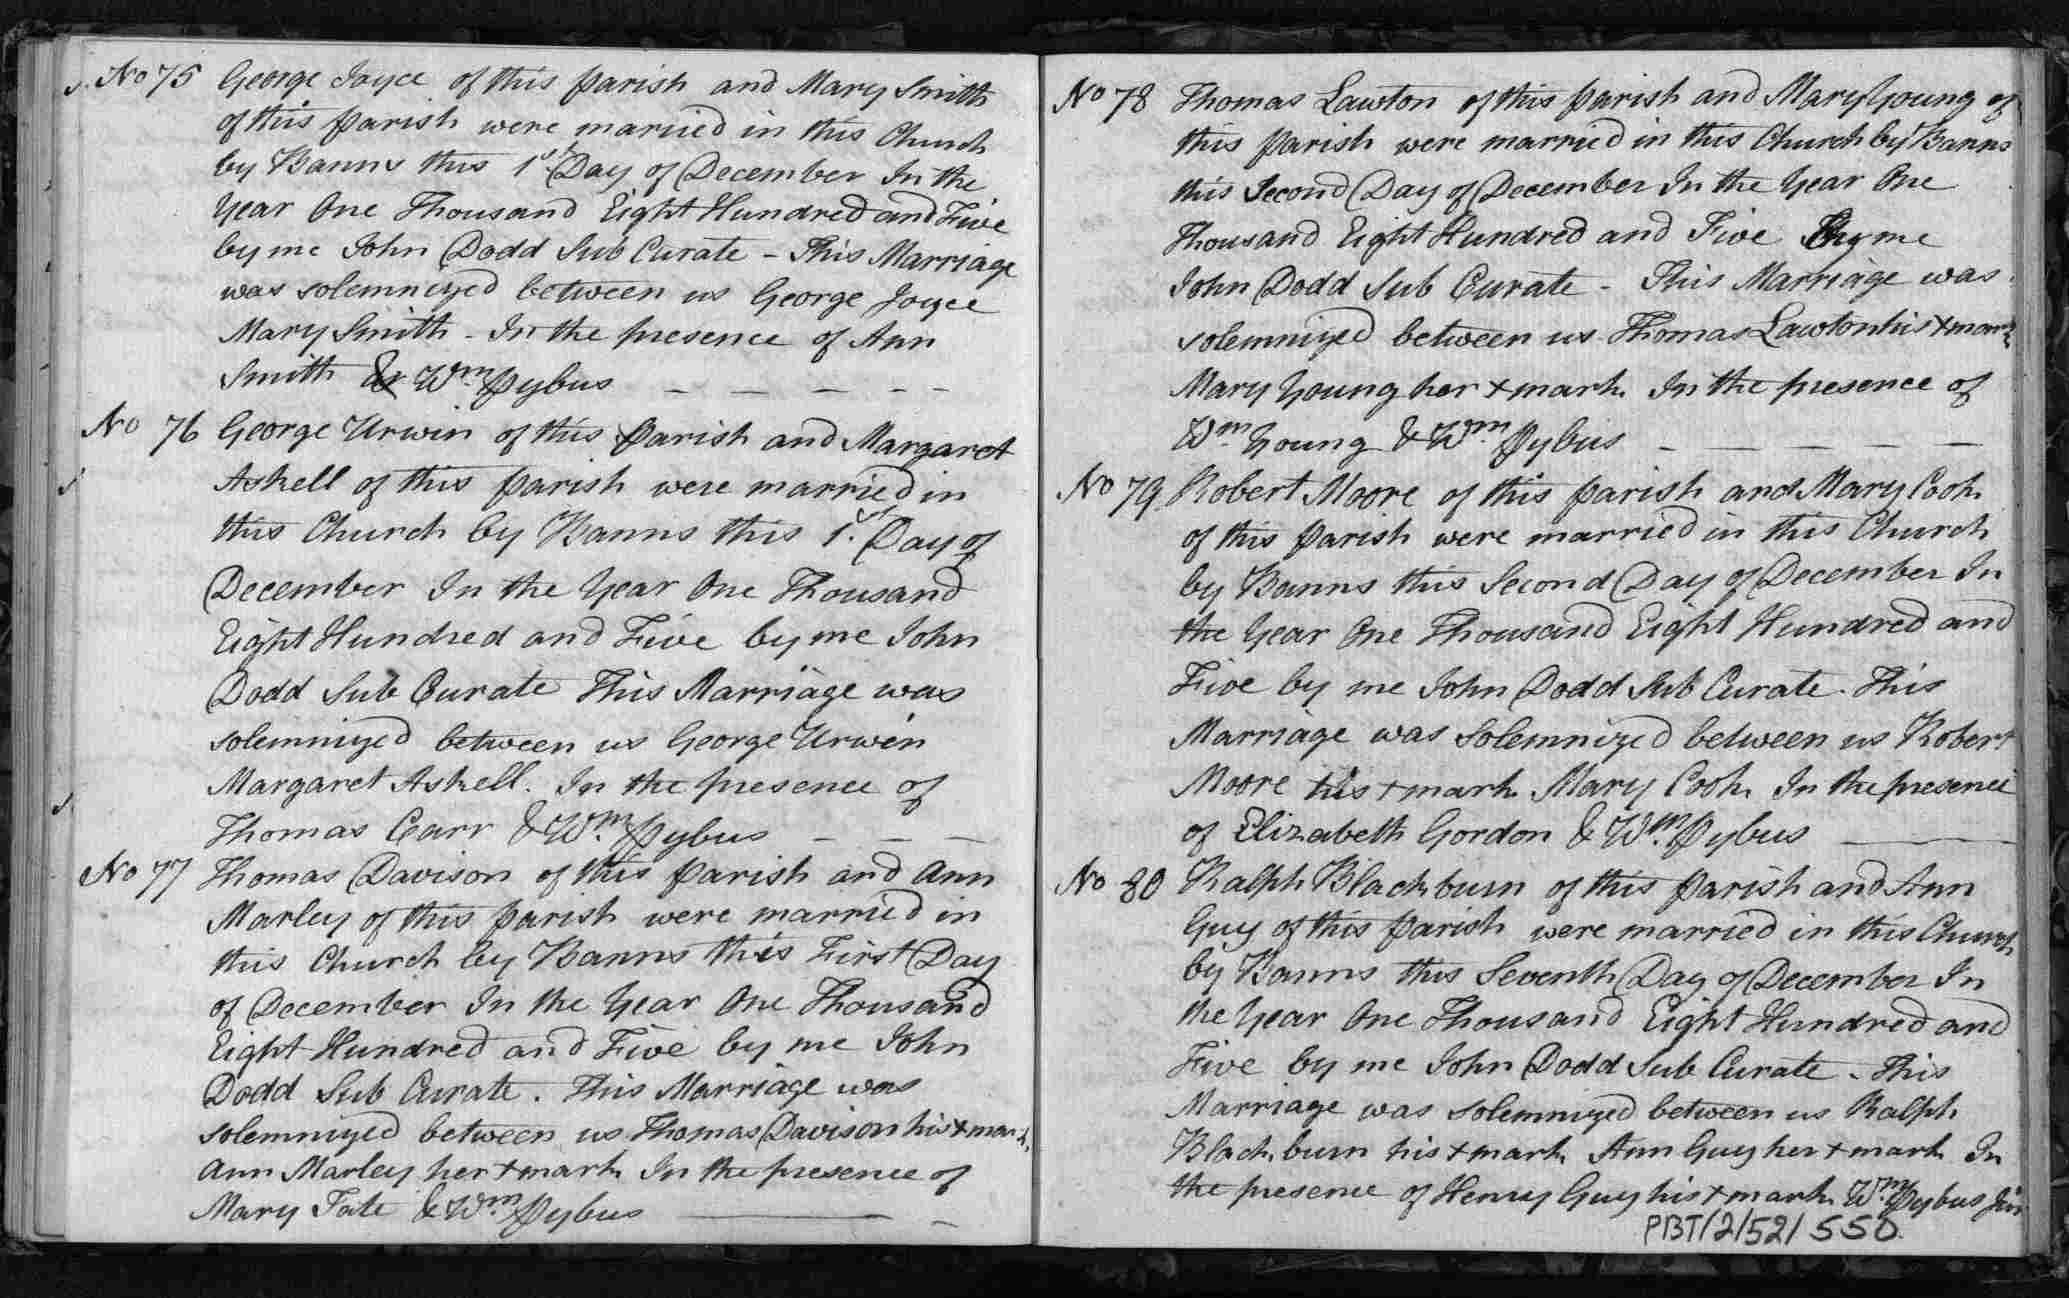 No 75 George Joyce of this parish and Mary Smith
of this parish were married in this Church
by Banns this 1st Day of December In the
Year One Thousand Eight Hundred and Five
by me John Dodd Sub Curate - This Marriage
was solemnized between us George Joyce
Mary Smith - In the presence of Ann
Smith & Wm Pybus - - - - -
No 76 George Urwin of this parish and Margaret
Askell of this parish were married in
this Church by Banns this 1st Day of
December In the Year One Thousand
Eight Hundred and Five by me John
Dodd Sub Curate This Marriage was
solemnized between us George Urwin
Margaret Askell. In the presence of
Thomas Carr & Wm Pybus - - -
No 77 Thomas Davison of this parish and Ann
Marley of this parish were married in
this Church by Banns this First Day
of December In the Year One Thousand
Eight Hundred and Five by me John
Dodd Sub Curate. This Marriage was
solemnized between us Thomas Davison his + mark
Ann Marley her + mark In the presence of
Mary Tate & Wm Pybus - -
No 78 Thomas Lawton of this parish and Mary Young of
this parish were married in this Church by Banns
this Second Day of December In the Year One
Thousand Eight Hundred and Five By me
John Dodd Sub Curate - This Marriage was
solemnized between us Thomas Lawton his + mark
Mary Young her + mark In the presence of
Wm Young & Wm Pybus - - - - -
No 79 Robert Moore of this parish and Mary Cook
of this parish were married in this Church
by Banns this Second Day of December In
the Year One Thousand Eight Hundred and
Five by me John Dodd Sub Curate. This
Marriage was Solemnized between us Robert
Moore his + mark Mary Cook In the presence
of Elizabeth Gordon & Wm Pybus -
No 80 Ralph Blackburn of this parish and Ann
Guy of this parish were married in this Church
by Banns this Seventh Day of December In
the Year One Thousand Eight Hundred and
Five by me John Dodd Sub Curate - This
Marriage was solemnized between us Ralph
Blackburn his + mark Ann Guy her + mark In
the presence of Henry Guy his + mark Wm Pybus Jun
PBT/2/52/550